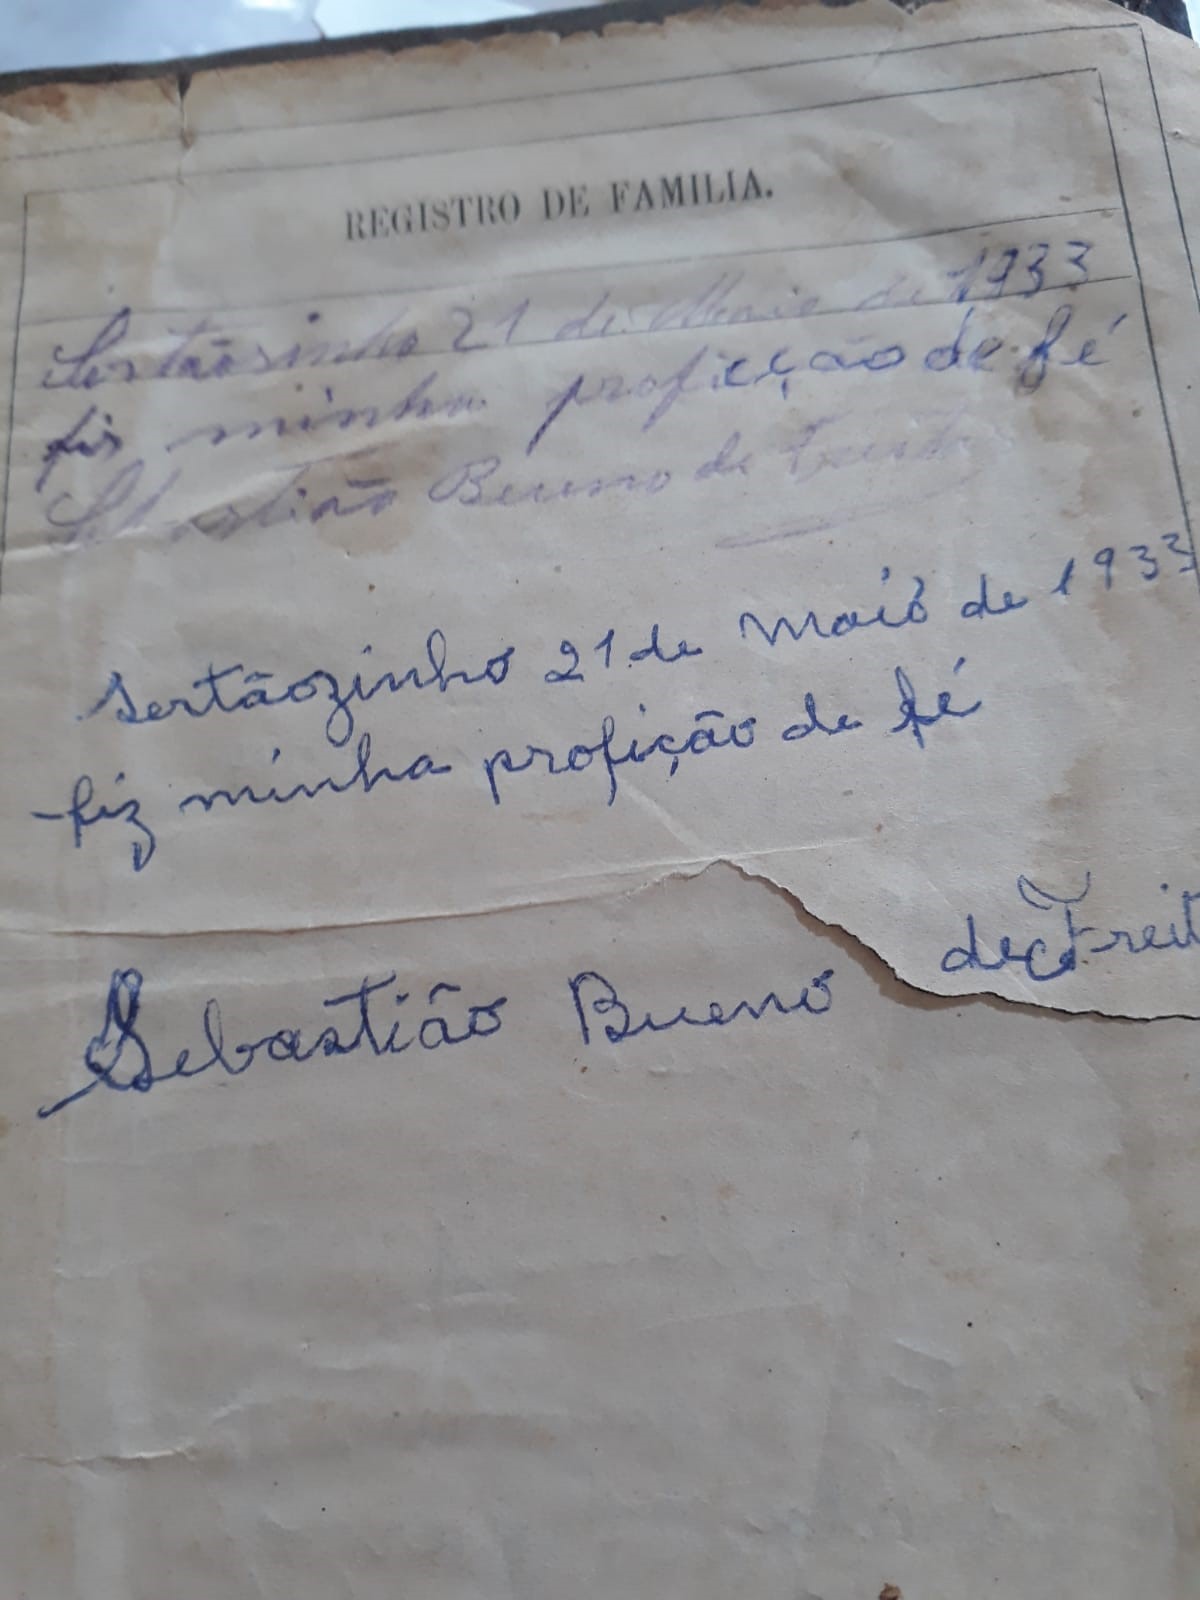 REGISTRO DE FAMILIA.
Sertãosinho 21 de Maio de 1933
fis minha proficção de fé
Sebastião Bueno de
Sertãozinho 21 de maio de 1933
fiz minha profição de fé
Sebastião Bueno de Freit